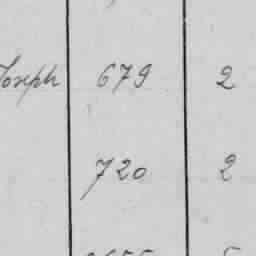 Joseph 679 2
720 2